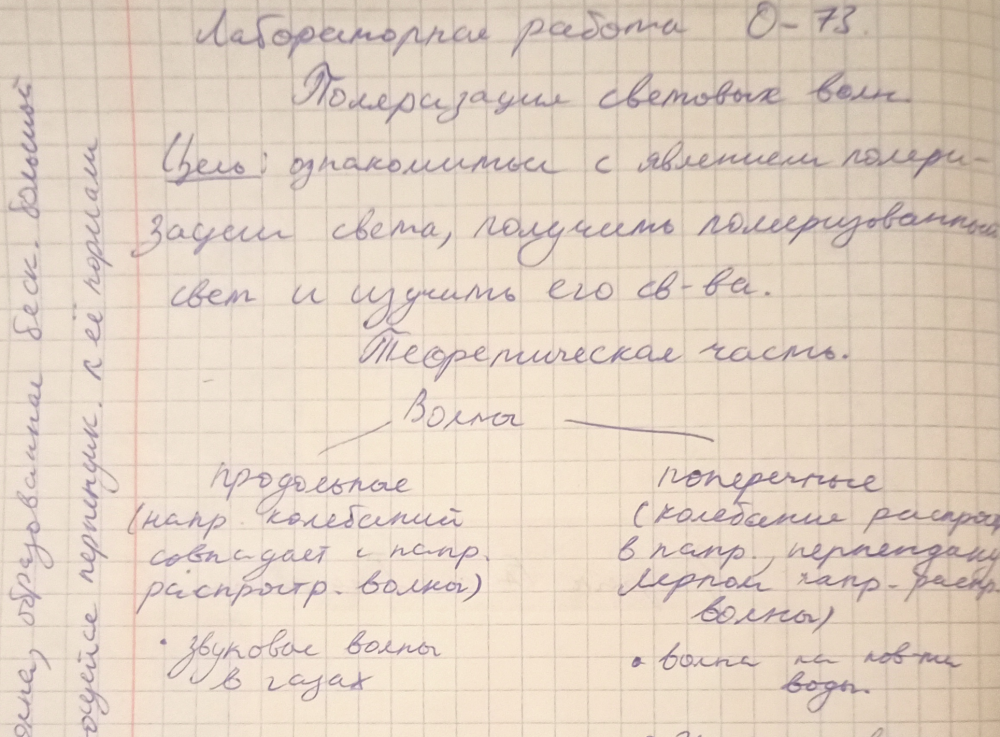 Лабораторная работа О-73.
Поляризация световых волн.
Цель: ознакомиться с явлением поляри-
зации света, получить поляризованный
свет и изучить его св-ва.
Теоретическая часть.
Волны
продольные
(напр. колебаний
совпадает с напр.
распростр. волны)
• звуковые волны
в газах
поперечные
(колебание распростр
в напр., перпендику
лярном напр. распр.
волны)
• волна на пов-ти
воды.
волна, образованная беск. большой
ющейся перпендик. к её нормали